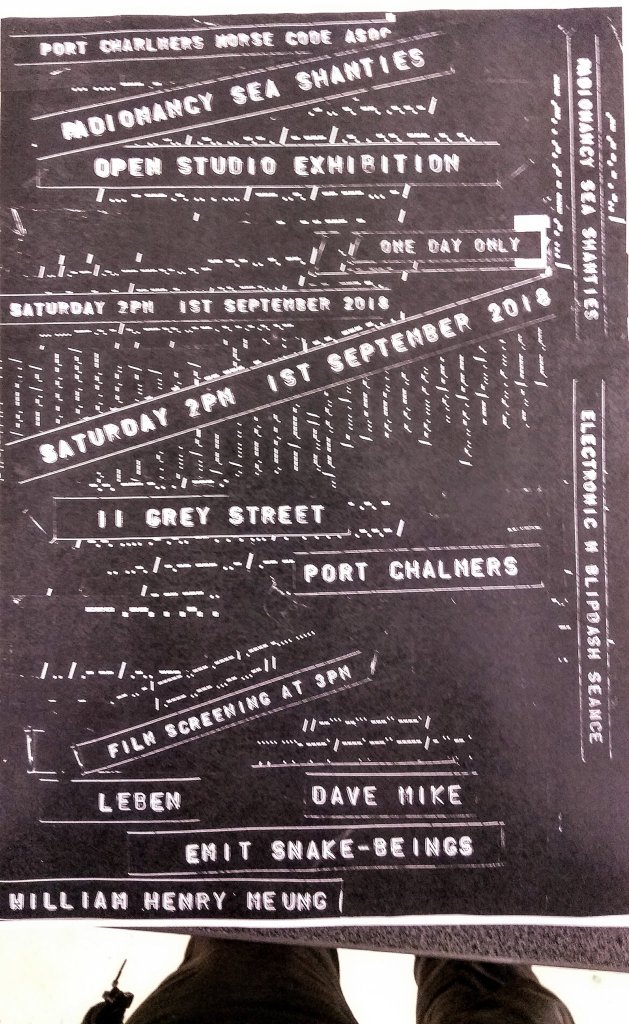 PORT CHARLMERS MORSE CODE ASOC
RADIOMANCY SEA SHANTIES
OPEN STUDIO EXHIBITION
ONE DAY ONLY
SATURDAY 2PM 1ST SEPTEMBER 2018
SATURDAY 2PM 1ST SEPTEMBER 2018
11 GREY STREET
PORT CHALMERS
FILM SCREENING AT 3PM
LEBEN
DAVE MIKE
EMIT SNAKE-BEINGS
WILLIAM HENRY MEUNG
RADIOMANCY SEA SHANTIES
ELECTRONIC N BLIPDASH SEANCE